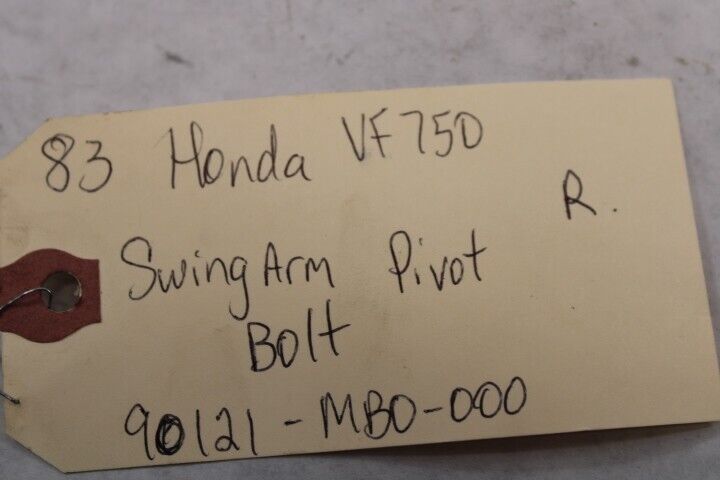 83 Honda VF750
R.
Swing Arm Pivot
Bolt
90121-MB0-000